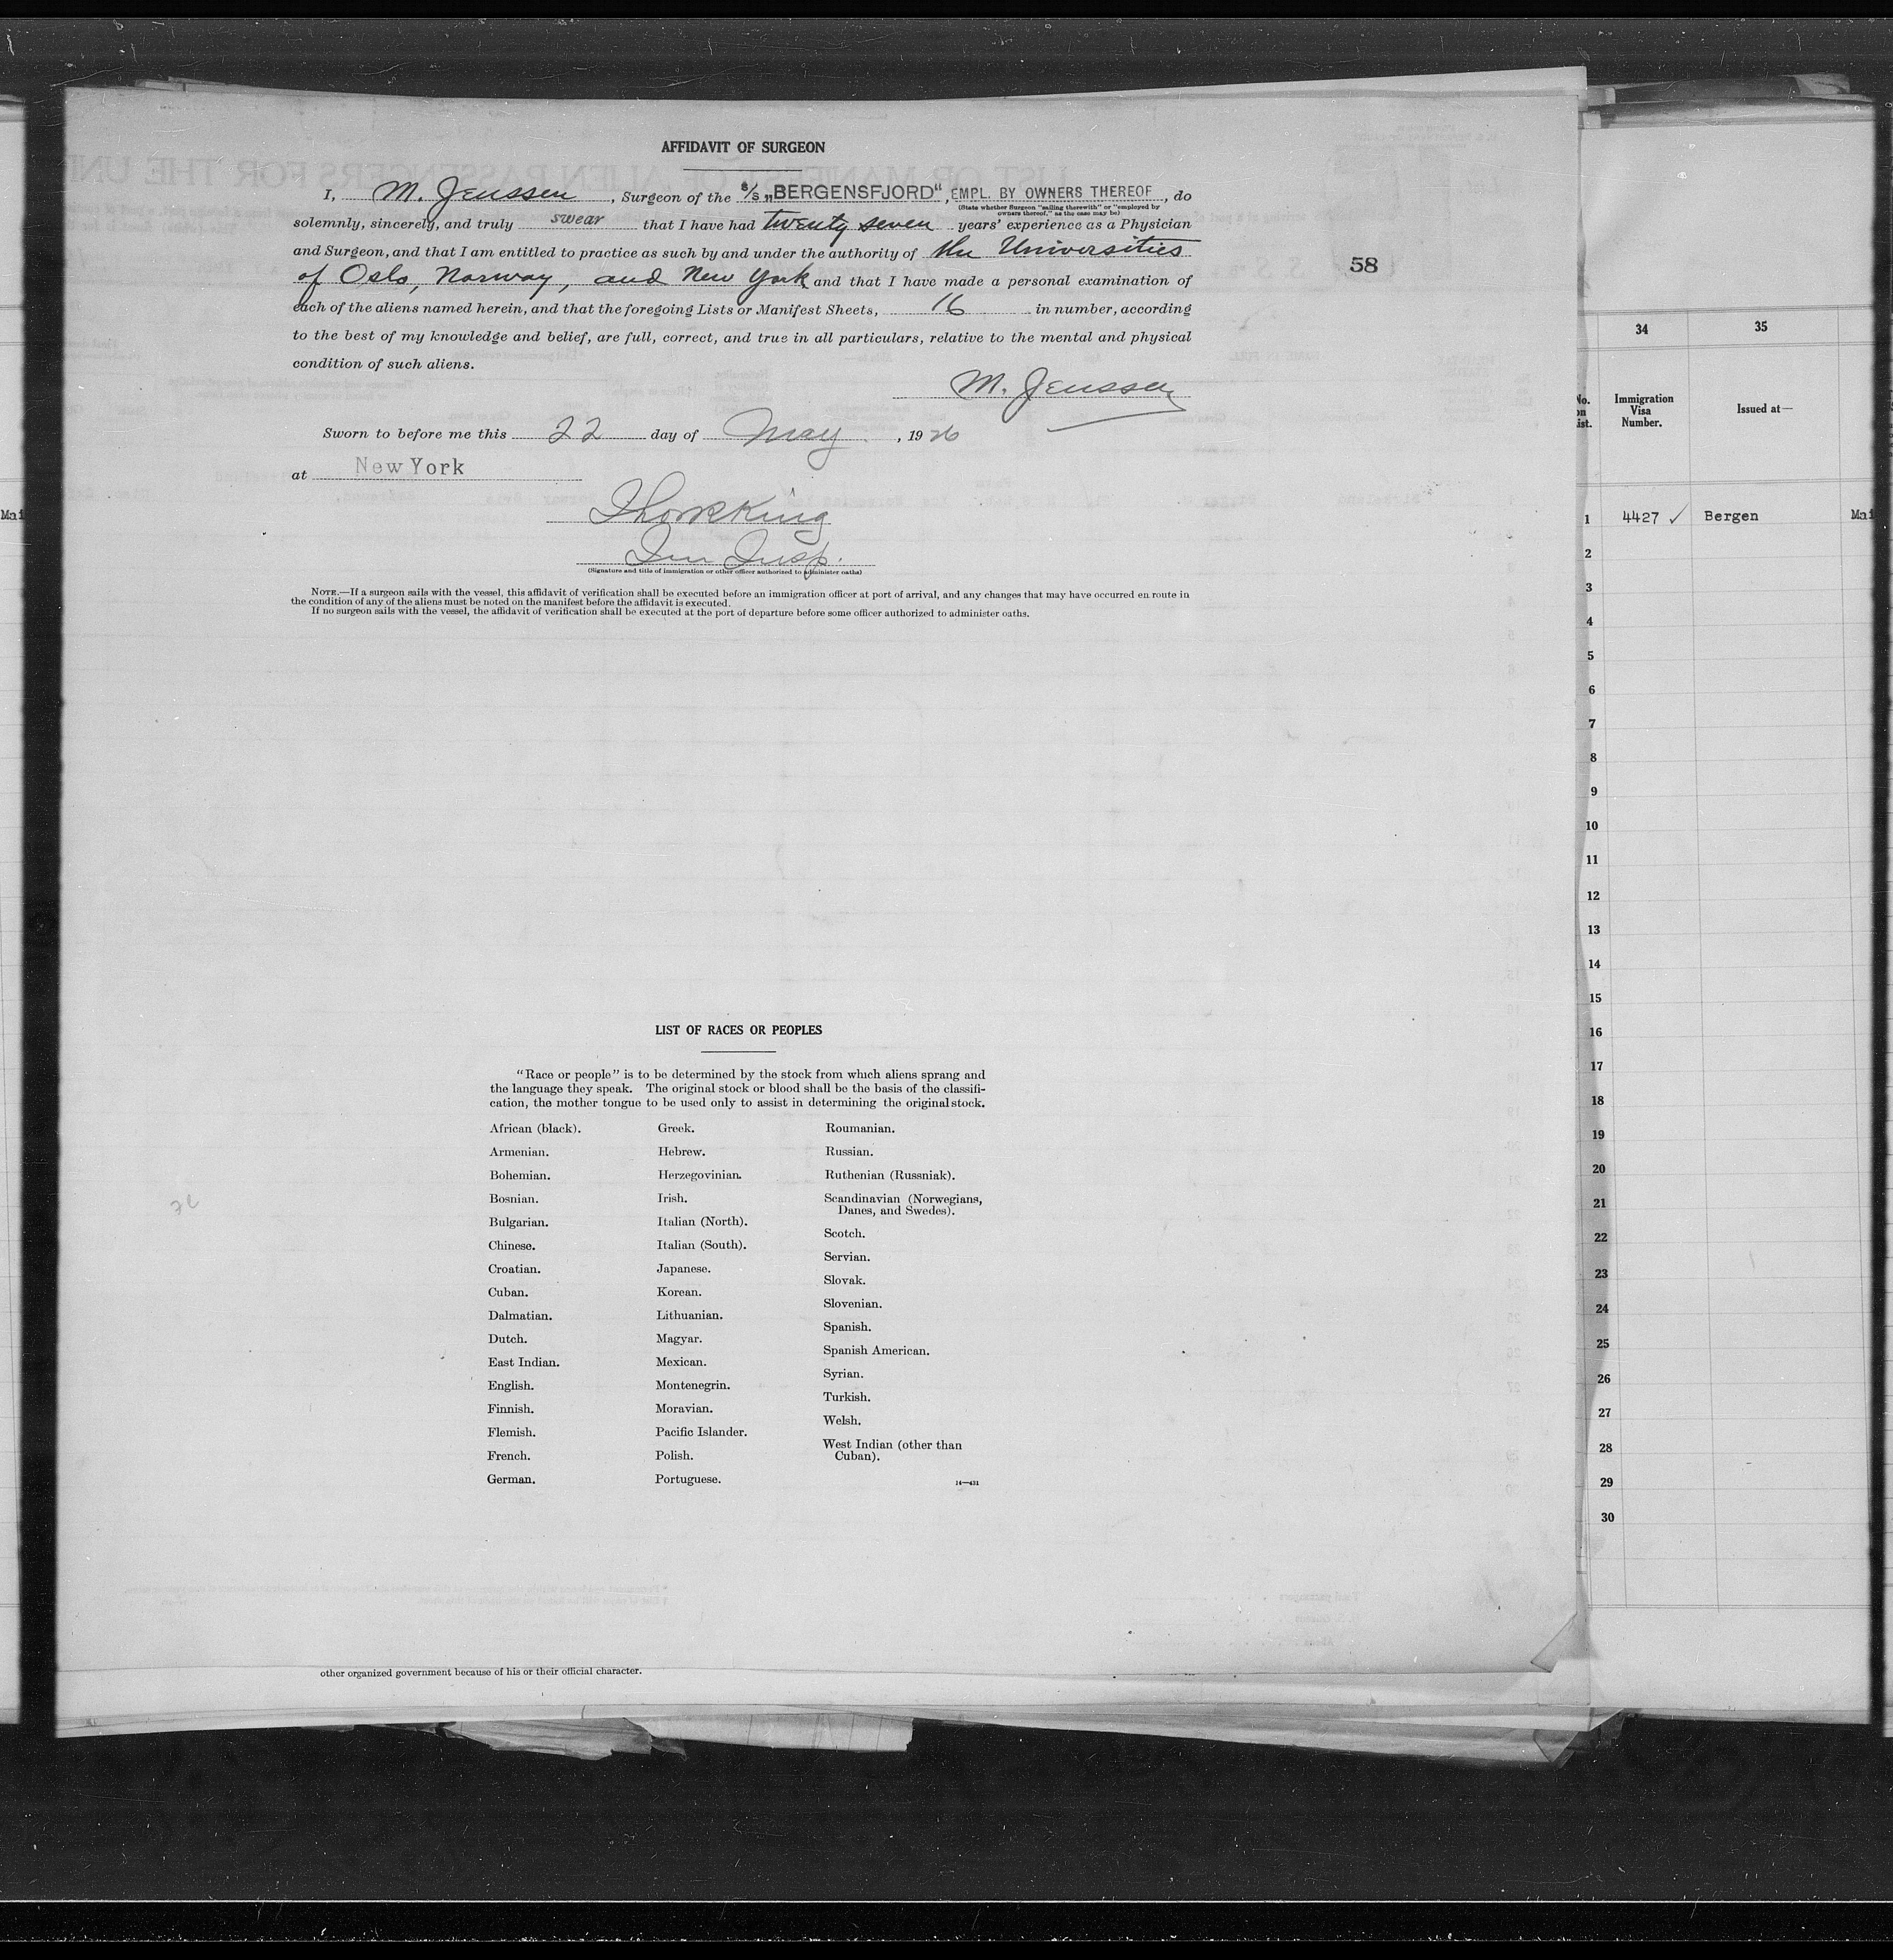 AFFIDAVIT OF SURGEON
I, M. Jenssen, Surgeon of the S/S „BERGENSFJORD“, EMPL. BY OWNERS THEREOF, do
(State whether Surgeon "sailing therewith" or "employed by
owners thereof," as the case may be)
solemnly, sincerely, and truly swear that I have had twenty seven years' experience as a Physician
and Surgeon, and that I am entitled to practice as such by and under the authority of the Universities
of Oslo, Norway, and New York and that I have made a personal examination of
each of the aliens named herein, and that the foregoing Lists or Manifest Sheets, 16 in number, according
to the best of my knowledge and belief, are full, correct, and true in all particulars, relative to the mental and physical
condition of such aliens.
M. Jenssen
Sworn to before me this 22 day of May, 1926
at New York
King
Im Insp.
(Signature and title of immigration or other officer authorized to administer oaths)
NOTE.—If a surgeon sails with the vessel, this affidavit of verification shall be executed before an immigration officer at port of arrival, and any changes that may have occurred en route in
the condition of any of the aliens must be noted on the manifest before the affidavit is executed.
If no surgeon sails with the vessel, the affidavit of verification shall be executed at the port of departure before some officer authorized to administer oaths.
58
LIST OF RACES OR PEOPLES
"Race or people" is to be determined by the stock from which aliens sprang and
the language they speak. The original stock or blood shall be the basis of the classifi-
cation, the mother tongue to be used only to assist in determining the original stock.
African (black).
Armenian.
Bohemian.
Bosnian.
Bulgarian.
Chinese.
Croatian.
Cuban.
Dalmatian.
Dutch.
East Indian.
English.
Finnish.
Flemish.
French.
German.
Greek.
Hebrew.
Herzegovinian.
Irish.
Italian (North).
Italian (South).
Japanese.
Korean.
Lithuanian.
Magyar.
Mexican.
Montenegrin.
Moravian.
Pacific Islander.
Polish.
Portuguese.
Roumanian.
Russian.
Ruthenian (Russniak).
Scandinavian (Norwegians,
Danes, and Swedes).
Scotch.
Servian.
Slovak.
Slovenian.
Spanish.
Spanish American.
Syrian.
Turkish.
Welsh.
West Indian (other than
Cuban).
14—431
other organized government because of his or their official character.
Mai
34
35
No.
on
ist.
Immigration
Visa
Number.
Issued at—
1 4427 ✓ Bergen Mai
2
3
4
5
6
7
8
9
10
11
12
13
14
15
16
17
18
19
20
21
22
23
24
25
26
27
28
29
30